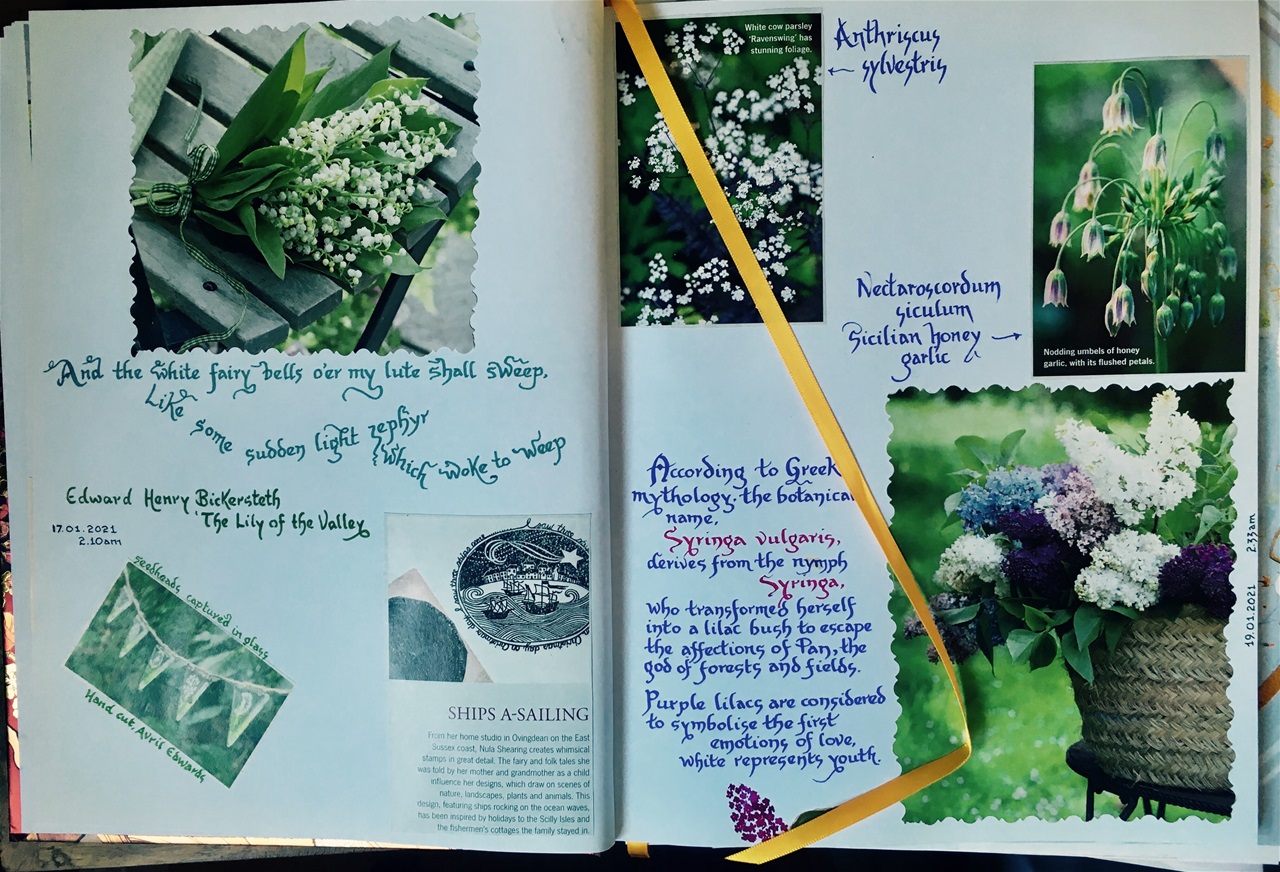 And the white fairy bells o'er my lute shall sweep,
Like some sudden light zephyr
which woke to weep
Edward Henry Bickersteth
'The Lily of the Valley
17.01.2021
2.10am
seedheads captured in glass
Hand cut, Avril Edwards
I saw three ships come
on Christmas day, on Christmas day
SHIPS A-SAILING
From her home studio in Ovingdean on the East
Sussex coast, Nula Shearing creates whimsical
stamps in great detail. The fairy and folk tales she
was told by her mother and grandmother as a child
influence her designs, which draw on scenes of
nature, landscapes, plants and animals. This
design, featuring ships rocking on the ocean waves,
has been inspired by holidays to the Scilly Isles and
the fishermen's cottages the family stayed in.
White cow parsley
'Ravenswing' has
stunning foliage.
Anthriscus
sylvestris
Nectaroscordum
siculum
Sicilian honey
garlic
Nodding umbels of honey
garlic, with its flushed petals.
According to Greek
mythology, the botanical
name,
Syringa vulgaris,
derives from the nymph
Syringa,
who transformed herself
into a lilac bush to escape
the affections of Pan, the
god of forests and fields.
Purple lilacs are considered
to symbolise the first
emotions of love,
white represents youth.
19.01.2021 2.33am